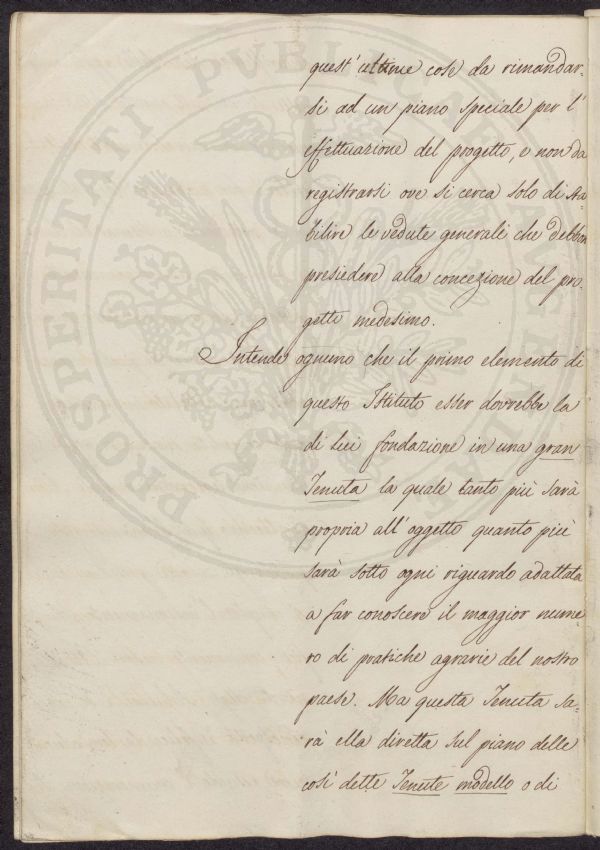 quest'ultime cose da rimandar-
si ad un piano speciale per l'
effettuazione del progetto, e non da
registrarsi ove si cerca solo di sta-
bilire le vedute generali che debbon
presiedere alla concezione del pro-
getto medesimo.
Intende ognuno che il primo elemento di
questo Istituto esser dovrebbe la
di lui fondazione in una gran
Tenuta la quale tanto più sarà
propria all'oggetto quanto più
sarà sotto ogni riguardo adattata
a far conoscere il maggior nume
ro di pratiche agrarie del nostro
paese. Ma questa Tenuta sa-
rà ella diretta sul piano delle
così dette Tenute modello o di
PROSPERITATI PUBLICAE AUGENDAE